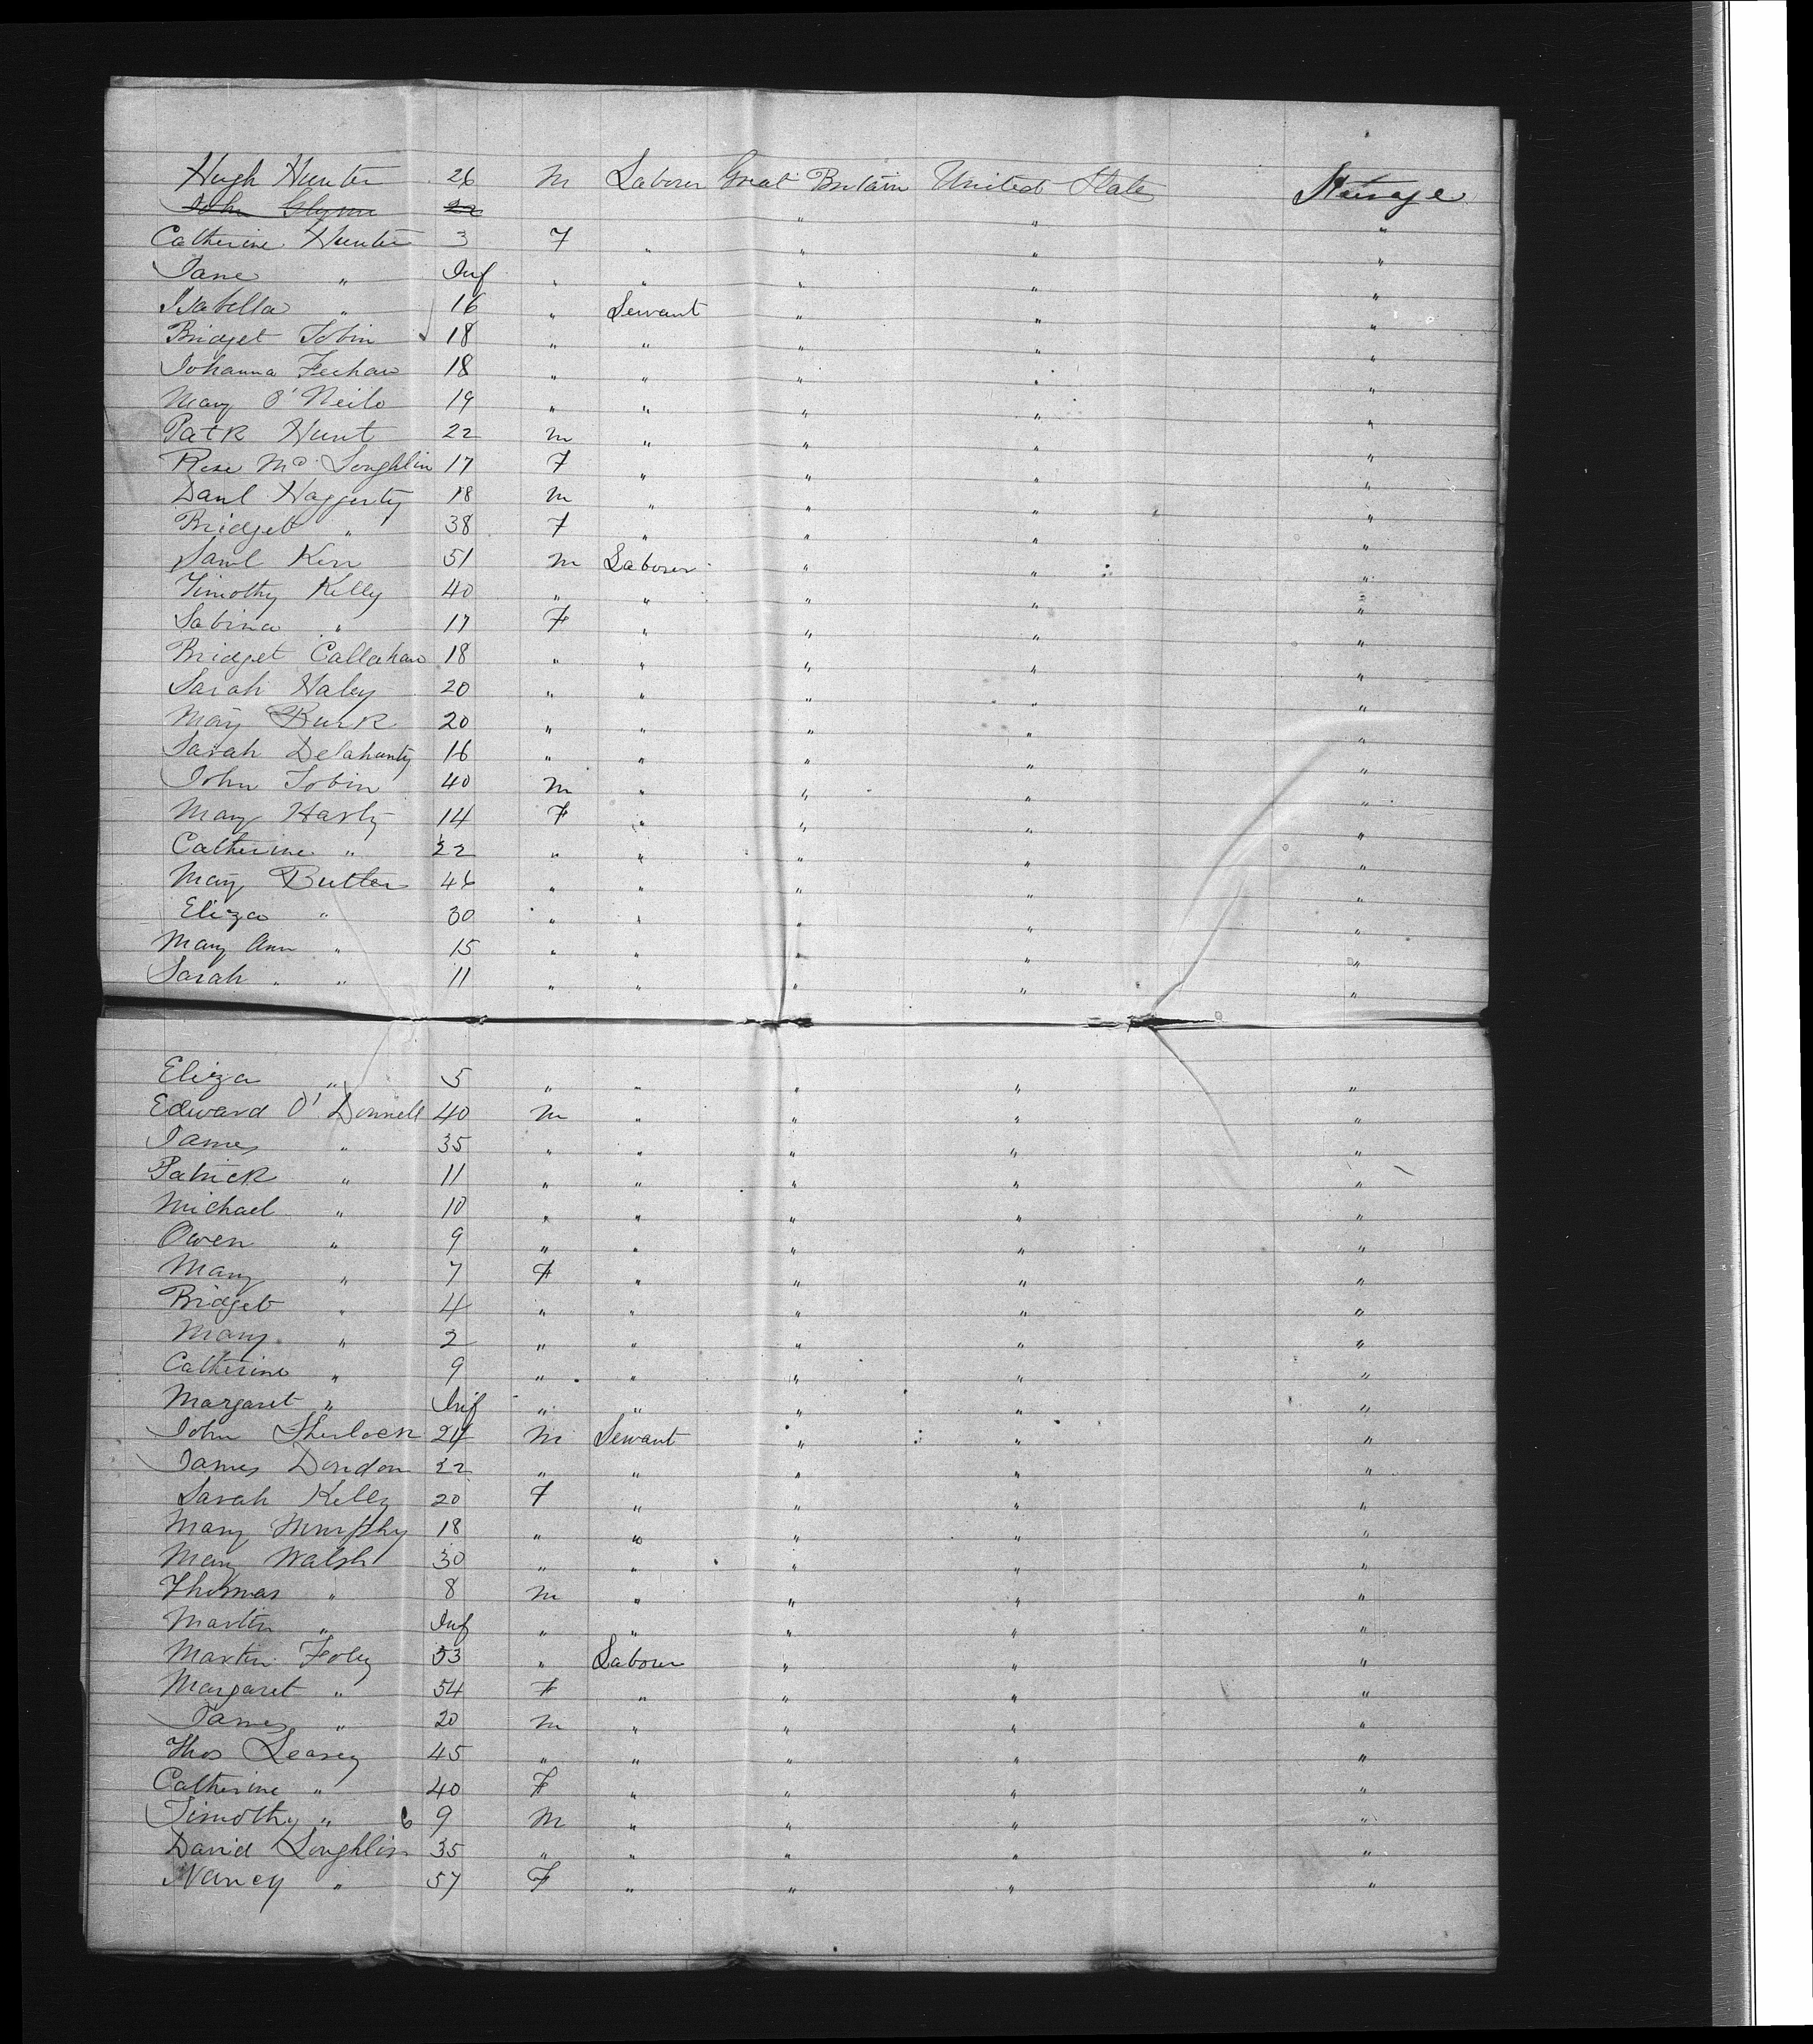 Hugh Hunter 26 M Laborer Great Britain United State Steerage
John Glynn 22 " " "
Catherine Hunter 3 F " " " "
Jane " Inf " " " " "
Isabella " 16 " Servant " " "
Bridget Tobin 18 " " " " "
Johanna Feehan 18 " " " " "
Mary O'Neilo 19 " " " " "
Patk Hunt 22 M " " " "
Rose Mc Loughlin 17 F " " " "
Danl Haggerty 18 M " " " "
Bridget " 38 F " " " "
Saml Kerr 51 M Laborer " " "
Timothy Kelly 40 " " " " "
Sabina " 17 F " " " "
Bridget Callahan 18 " " " " "
Sarah Haley 20 " " " " "
Mary Burk 20 " " " " "
Sarah Delahunty 16 " " " " "
John Tobin 40 M " " " "
Mary Harly 14 F " " " "
Catherine " 22 " " " " "
Mary Butler 46 " " " " "
Eliza " 30 " " " " "
Mary Ann " 15 " " " " "
Sarah " " 11 " " " " "
Eliza " 5 " " " " "
Edward O'Donnell 40 M " " " "
James " 35 " " " " "
Patrick " 11 " " " " "
Michael " 10 " " " " "
Owen " 9 " " " " "
Mary " 7 F " " " "
Bridget " 4 " " " " "
Mary " 2 " " " " "
Catherine " 9 " " " " "
Margaret " Inf " " " " "
John Sherlock 24 M Servant " " "
James Dondon 22 " " " " "
Sarah Kelly 20 F " " " "
Mary Murphy 18 " " " " "
Mary Walsh 30 " " " " "
Thomas " 8 M " " " "
Martin " Inf " " " " "
Martin Foley 53 " Labour " " "
Margaret " 54 F " " " "
James " 20 M " " " "
Thos Leasey 45 " " " " "
Catherine " 40 F " " " "
Timothy " 6 9 M " " " "
David Loughlin 35 " " " " "
Nancy " 57 F " " " "